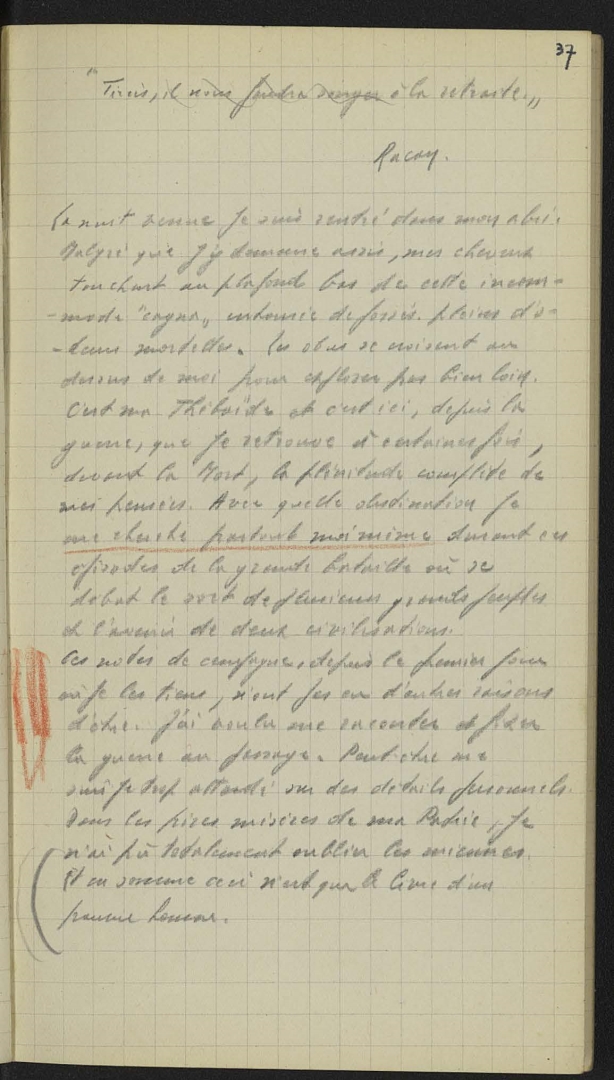 37
"Tircis, il nous faudra songer à la retraite.„
Racan.
La nuit venue je suis rentré dans mon abri.
Malgré que j'y demeure assis, mes cheveux
touchent au plafond bas de cette incom-
-mode "cagna„ entourée de fossés pleins d'o-
-deurs mortelles. Les obus se croisent au
dessus de moi pour exploser pas bien loin.
C'est ma Thébaïde et c'est ici, depuis la
guerre, que je retrouve à certaines fois,
devant la Mort, la plénitude complète de
mes pensées. Avec quelle obstination je
me cherche partout moi même durant ces
épisodes de la grande bataille où se
débat le sort de plusieurs grands peuples
et l'avenir de deux civilisations.
Ces notes de campagne, depuis le premier jour
où je les tiens, n'ont pas eu d'autres raisons
d'être. J'ai voulu me raconter et fixer
la guerre au passage. Peut être me
suis je trop attardé sur des détails personnels.
Dans les pires misères de ma Patrie, je
n'ai pû totalement oublier les miennes.
Et en somme ceci n'est que le livre d'un
pauvre homme.